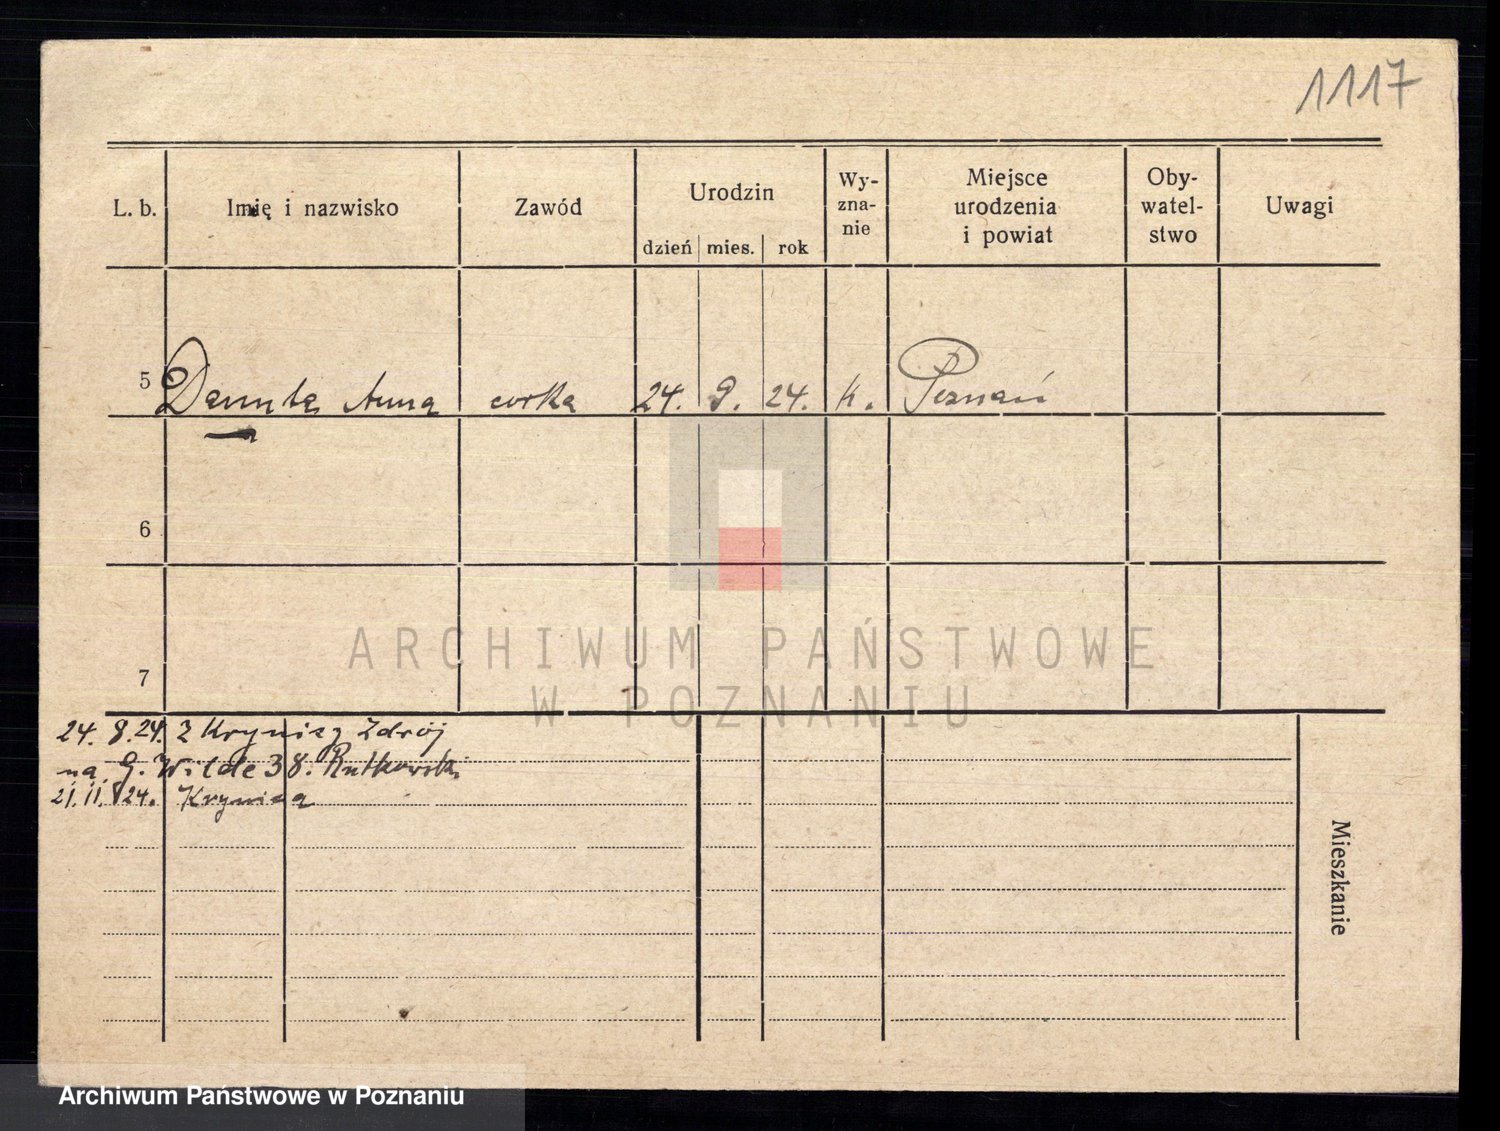 1117
L. b.
Imię i nazwisko
Zawód
Urodzin
dzień mies. rok
Wy-
zna-
nie
Miejsce
urodzenia
i powiat
Oby-
watel-
stwo
Uwagi
5 Danuta Anna córka 24. 9. 24. k. Poznań
6
7
24. 9. 24. z Krynicy Zdrój
na G. Wilde 38. Rutkowski
21. 11. 24. Krynica
Mieszkanie
ARCHIWUM PAŃSTWOWE
W POZNANIU
Archiwum Państwowe w Poznaniu